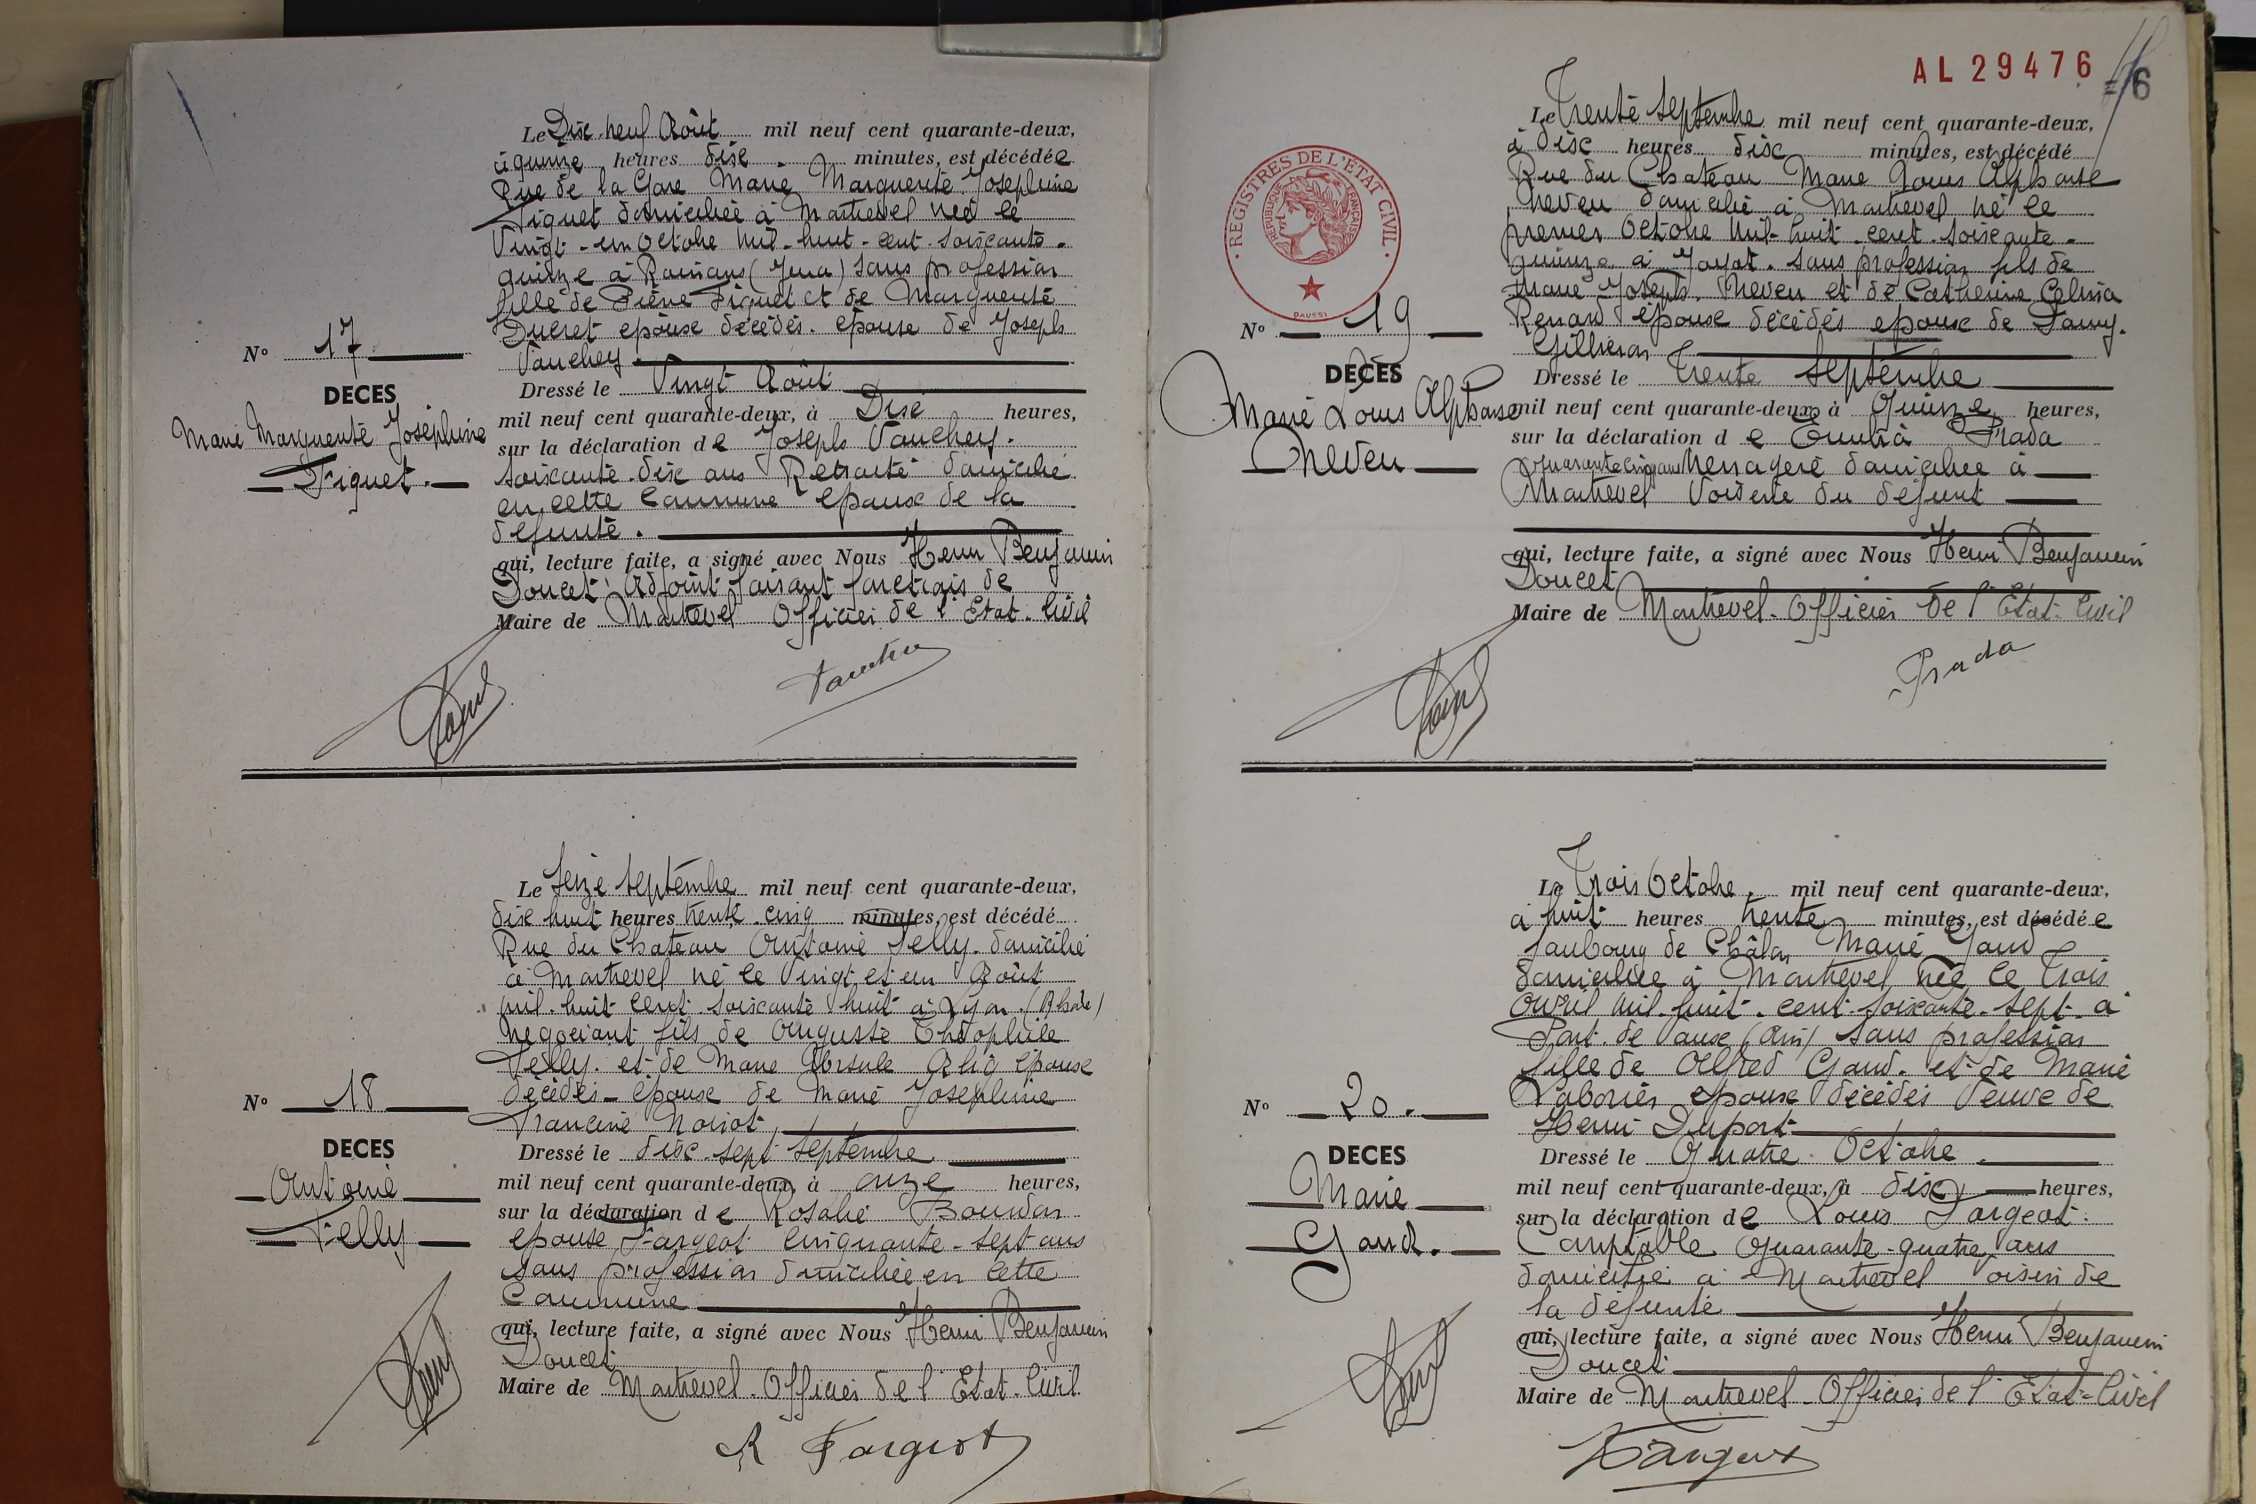 Le Dix-neuf Août mil neuf cent quarante-deux,
à quinze heures dix minutes, est décédée
Rue de la Gare Marie Marguerite Joséphine
Figuet domiciliée à Montrevel née le
Vingt-un Octobre mil-huit-cent-soixante-
quinze à (Jura) sans profession
fille de Pierre Figuet et de Marguerite
Ducret épouse décédés. épouse de Joseph
Vauchey.
N° 17
DECES
Marie Marguerite Joséphine
Figuet.
Dressé le Vingt Août
mil neuf cent quarante-deux, à Dix heures,
sur la déclaration de Joseph Vauchey.
soixante-dix ans Retraité domicilié
en cette commune époux de la
défunte.
qui, lecture faite, a signé avec Nous Henri Benjamin
Doucet Adjoint faisant fonctions de
Maire de Montrevel Officier de l'Etat-Civil
Le Seize Septembre mil neuf cent quarante-deux,
dix huit heures trente cinq minutes, est décédé
Rue du Chateau Antoine Felly. domicilié
à Montrevel né le Vingt et un Août
mil-huit cent soixante huit à Lyon (Rhône)
négociant fils de Auguste Théophile
Felly. et de Marie Ursule épouse
décédés - époux de Marie Joséphine
Francine Noirot
N° 18
DECES
Antoine
Felly
Dressé le dix-sept Septembre
mil neuf cent quarante-deux, à onze heures,
sur la déclaration de Rosalie Bourdon
épouse Fargeot Cinquante-sept ans
sans profession domiciliée en cette
Commune
qui, lecture faite, a signé avec Nous Henri Benjamin
Doucet
Maire de Montrevel-Officier de l'Etat-Civil
R Fargeot
AL 29476
6
Le Trente Septembre mil neuf cent quarante-deux,
à dix heures dix minutes, est décédé
Rue du Chateau Marie Louis Alphonse
Neveu domicilié à Montrevel né le
premier Octobre mil-huit-cent-soixante-
quinze à Jayat. sans profession fils de
Marie Joseph. Neveu et de Catherine
Renaud épouse décédés époux de Fanny.
Gilliéron
REGISTRES DE L'ETAT CIVIL
REPUBLIQUE FRANÇAISE
DAUSSI
N° 19
DECES
Marie Louis Alphonse
Neveu
Dressé le Trente Septembre
mil neuf cent quarante-deux, à Quinze heures,
sur la déclaration de Prada
quarante cinq ans Ménagère domiciliée à
Montrevel Voisine du défunt
qui, lecture faite, a signé avec Nous Henri Benjamin
Doucet
Maire de Montrevel-Officier de l'Etat-Civil
Prada
Le Trois Octobre. mil neuf cent quarante-deux,
à huit heures trente minutes, est décédée
Faubourg de Châlon Marie Gaud
domiciliée à Montrevel née le Trois
Avril mil-huit-cent-soixante-sept-à
Pont-de-Vaux (Ain) sans profession
fille de Alfred Gaud. et de Marie
épouse décédés Veuve de
Henri Dupont
N° 20.
DECES
Marie
Gaud.
Dressé le Quatre Octobre.
mil neuf cent quarante-deux, à dix heures,
sur la déclaration de Louis Fargeot.
Comptable quarante-quatre ans
domicilié à Montrevel voisin de
la défunte
qui, lecture faite, a signé avec Nous Henri Benjamin
Doucet
Maire de Montrevel-Officier de l'Etat-Civil
Fargeot